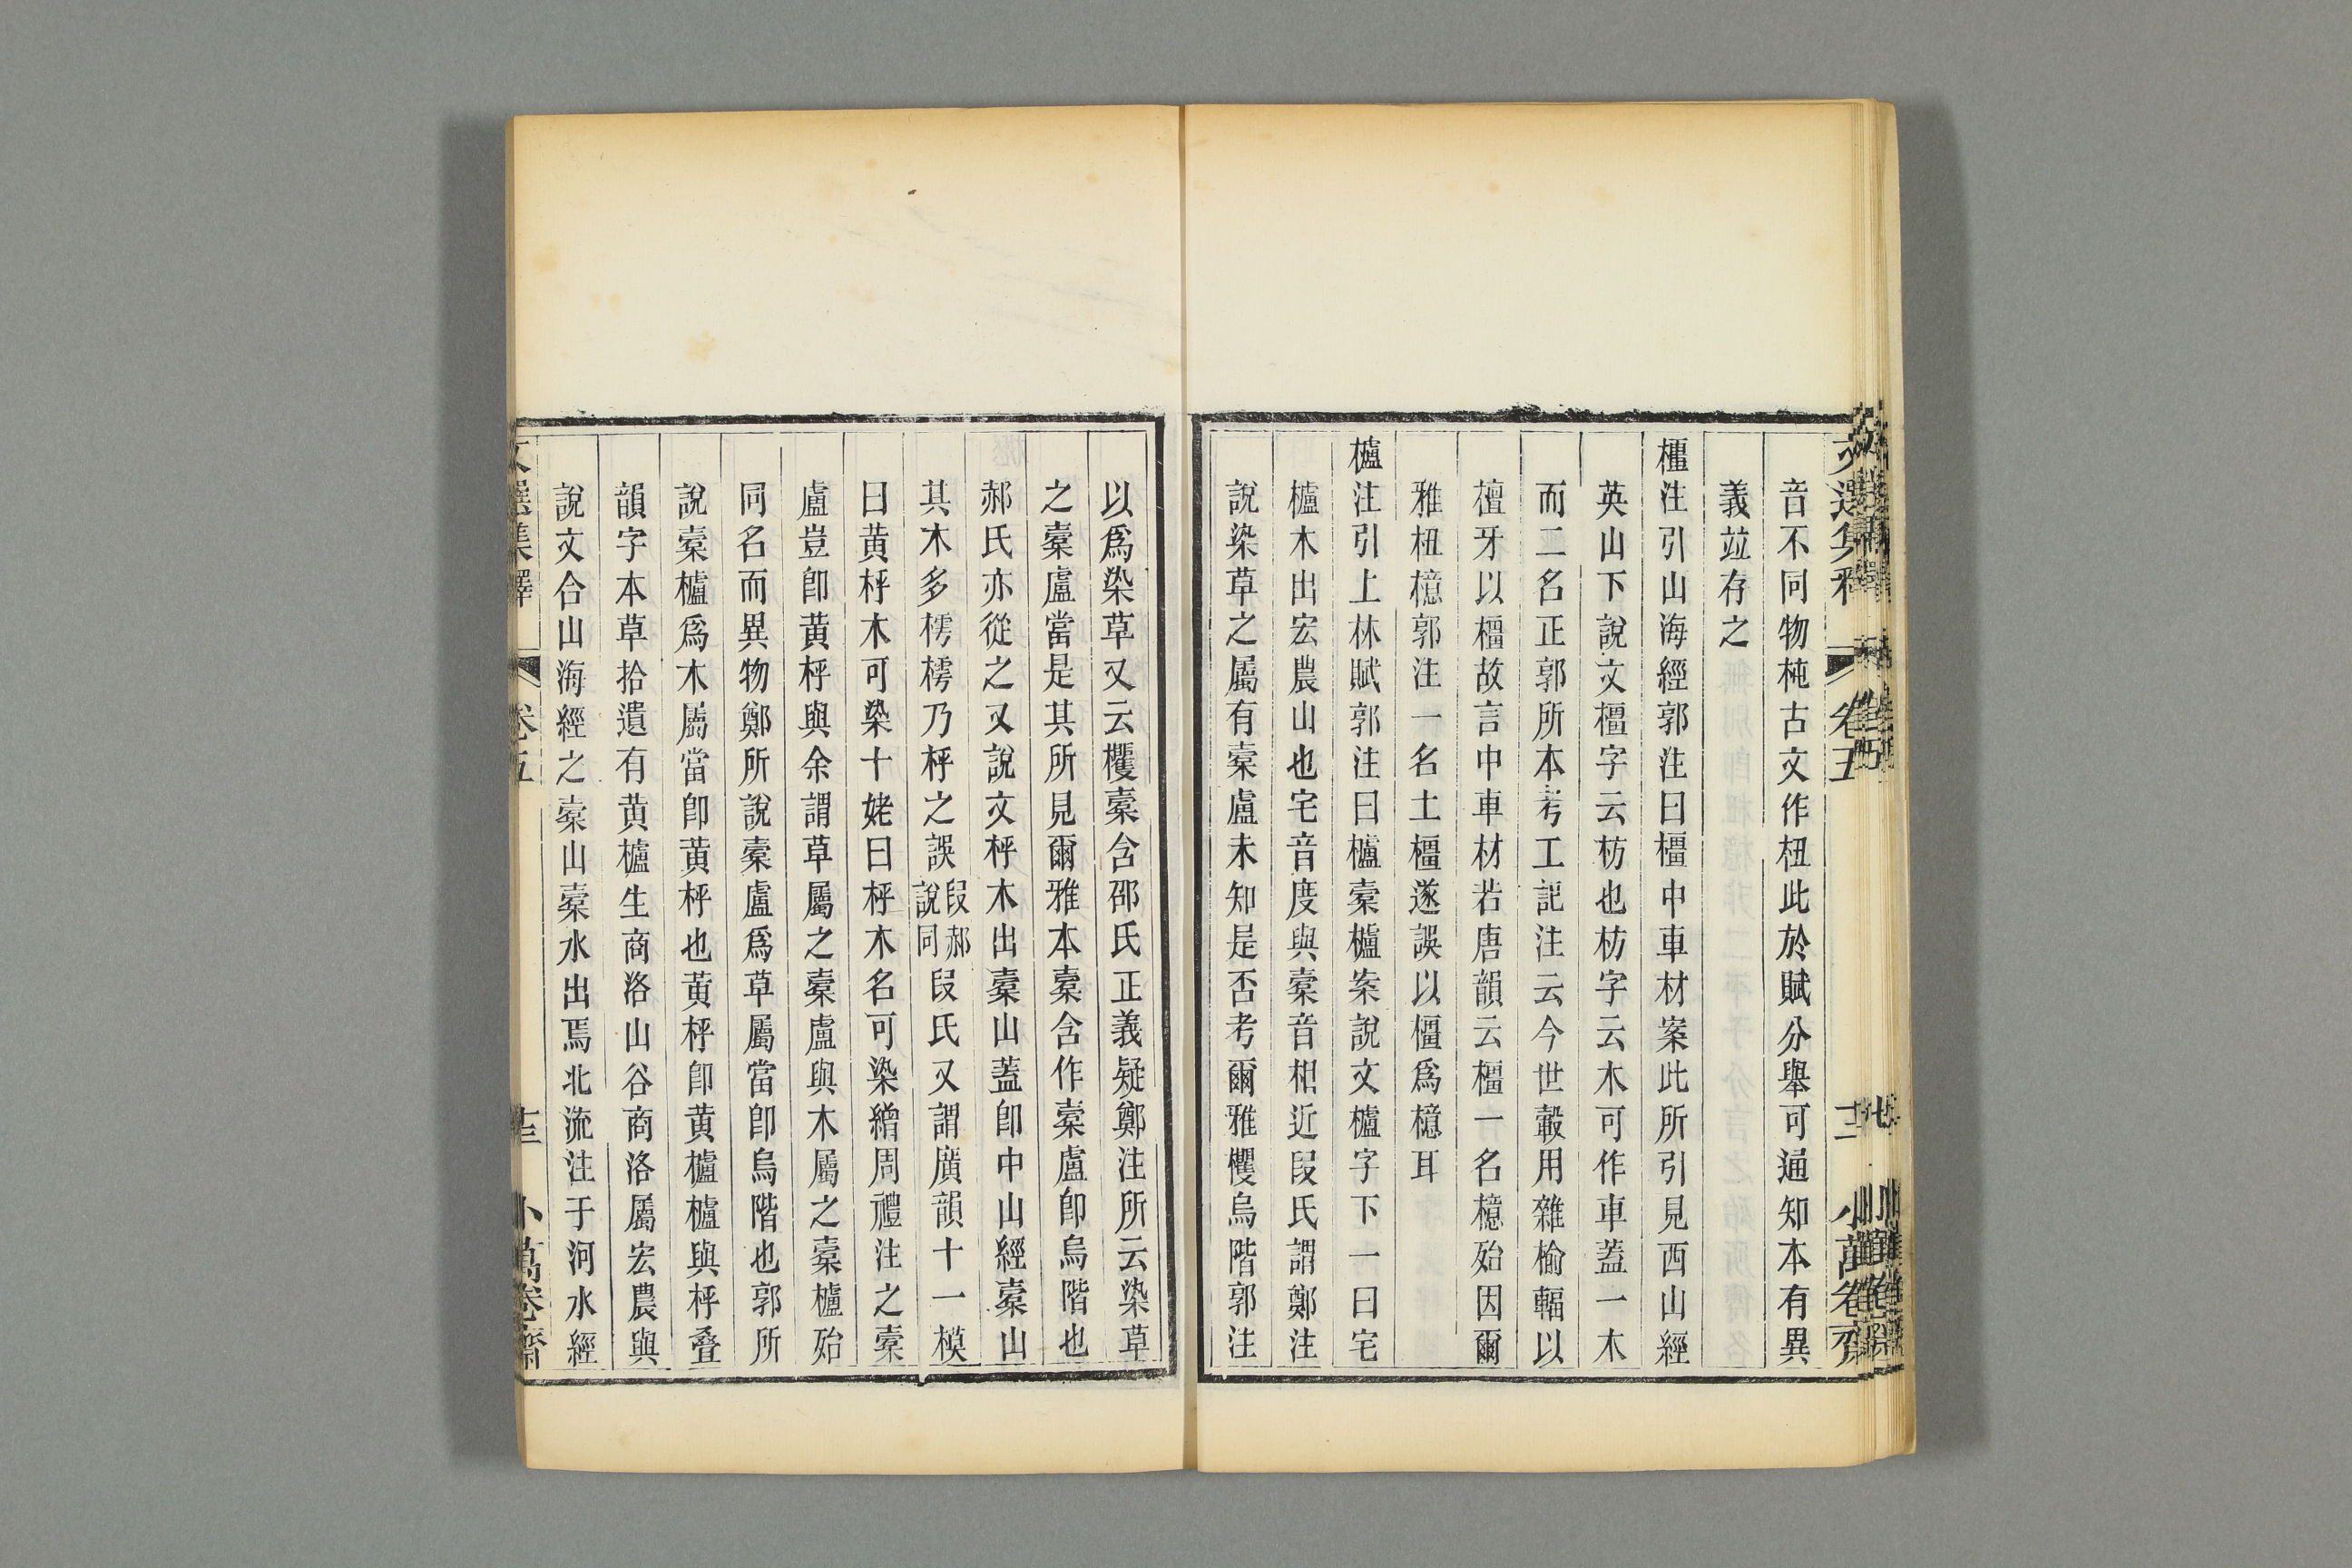 音不同物杶古文作杻此於賦分舉可通知本有異
義竝存之
橿注引山海經郭注曰橿中車材案此所引見西山經
英山下說文橿字云枋也枋字云木可作車蓋一木
而二名正郭所本考工記注云今世轂用雜榆輻以
檀牙以橿故言中車材若唐韻云橿一名檍殆因爾
雅杻檍郭注一名土橿遂誤以橿爲檍耳
櫨注引上林賦郭注曰櫨櫜櫨案說文櫨字下一曰宅
櫨木出宏農山也宅音度與櫜音相近段氏謂鄭注
說染草之屬有櫜盧未知是否考爾雅欔烏階郭注
以爲染草又云欔櫜含邵氏正義疑鄭注所云染草
之櫜盧當是其所見爾雅本櫜含作櫜盧卽烏階也
郝氏亦從之又說文枰木出櫜山蓋卽中山經櫜山
其木多樗樗乃枰之誤段郝說同段氏又謂廣韻十一模
曰黄枰木可染十姥曰枰木名可染繒周禮注之櫜
盧豈卽黄枰與余謂草屬之櫜盧與木屬之櫜櫨殆
同名而異物鄭所說櫜盧爲草屬當卽烏階也郭所
說櫜櫨爲木屬當卽黄枰也黄枰卽黄櫨櫨與枰叠
韻字本草拾遺有黄櫨生商洛山谷商洛屬宏農與
說文合山海經之櫜山櫜水出焉北流注于河水經
文選集釋 卷五 十三 小萬卷齋